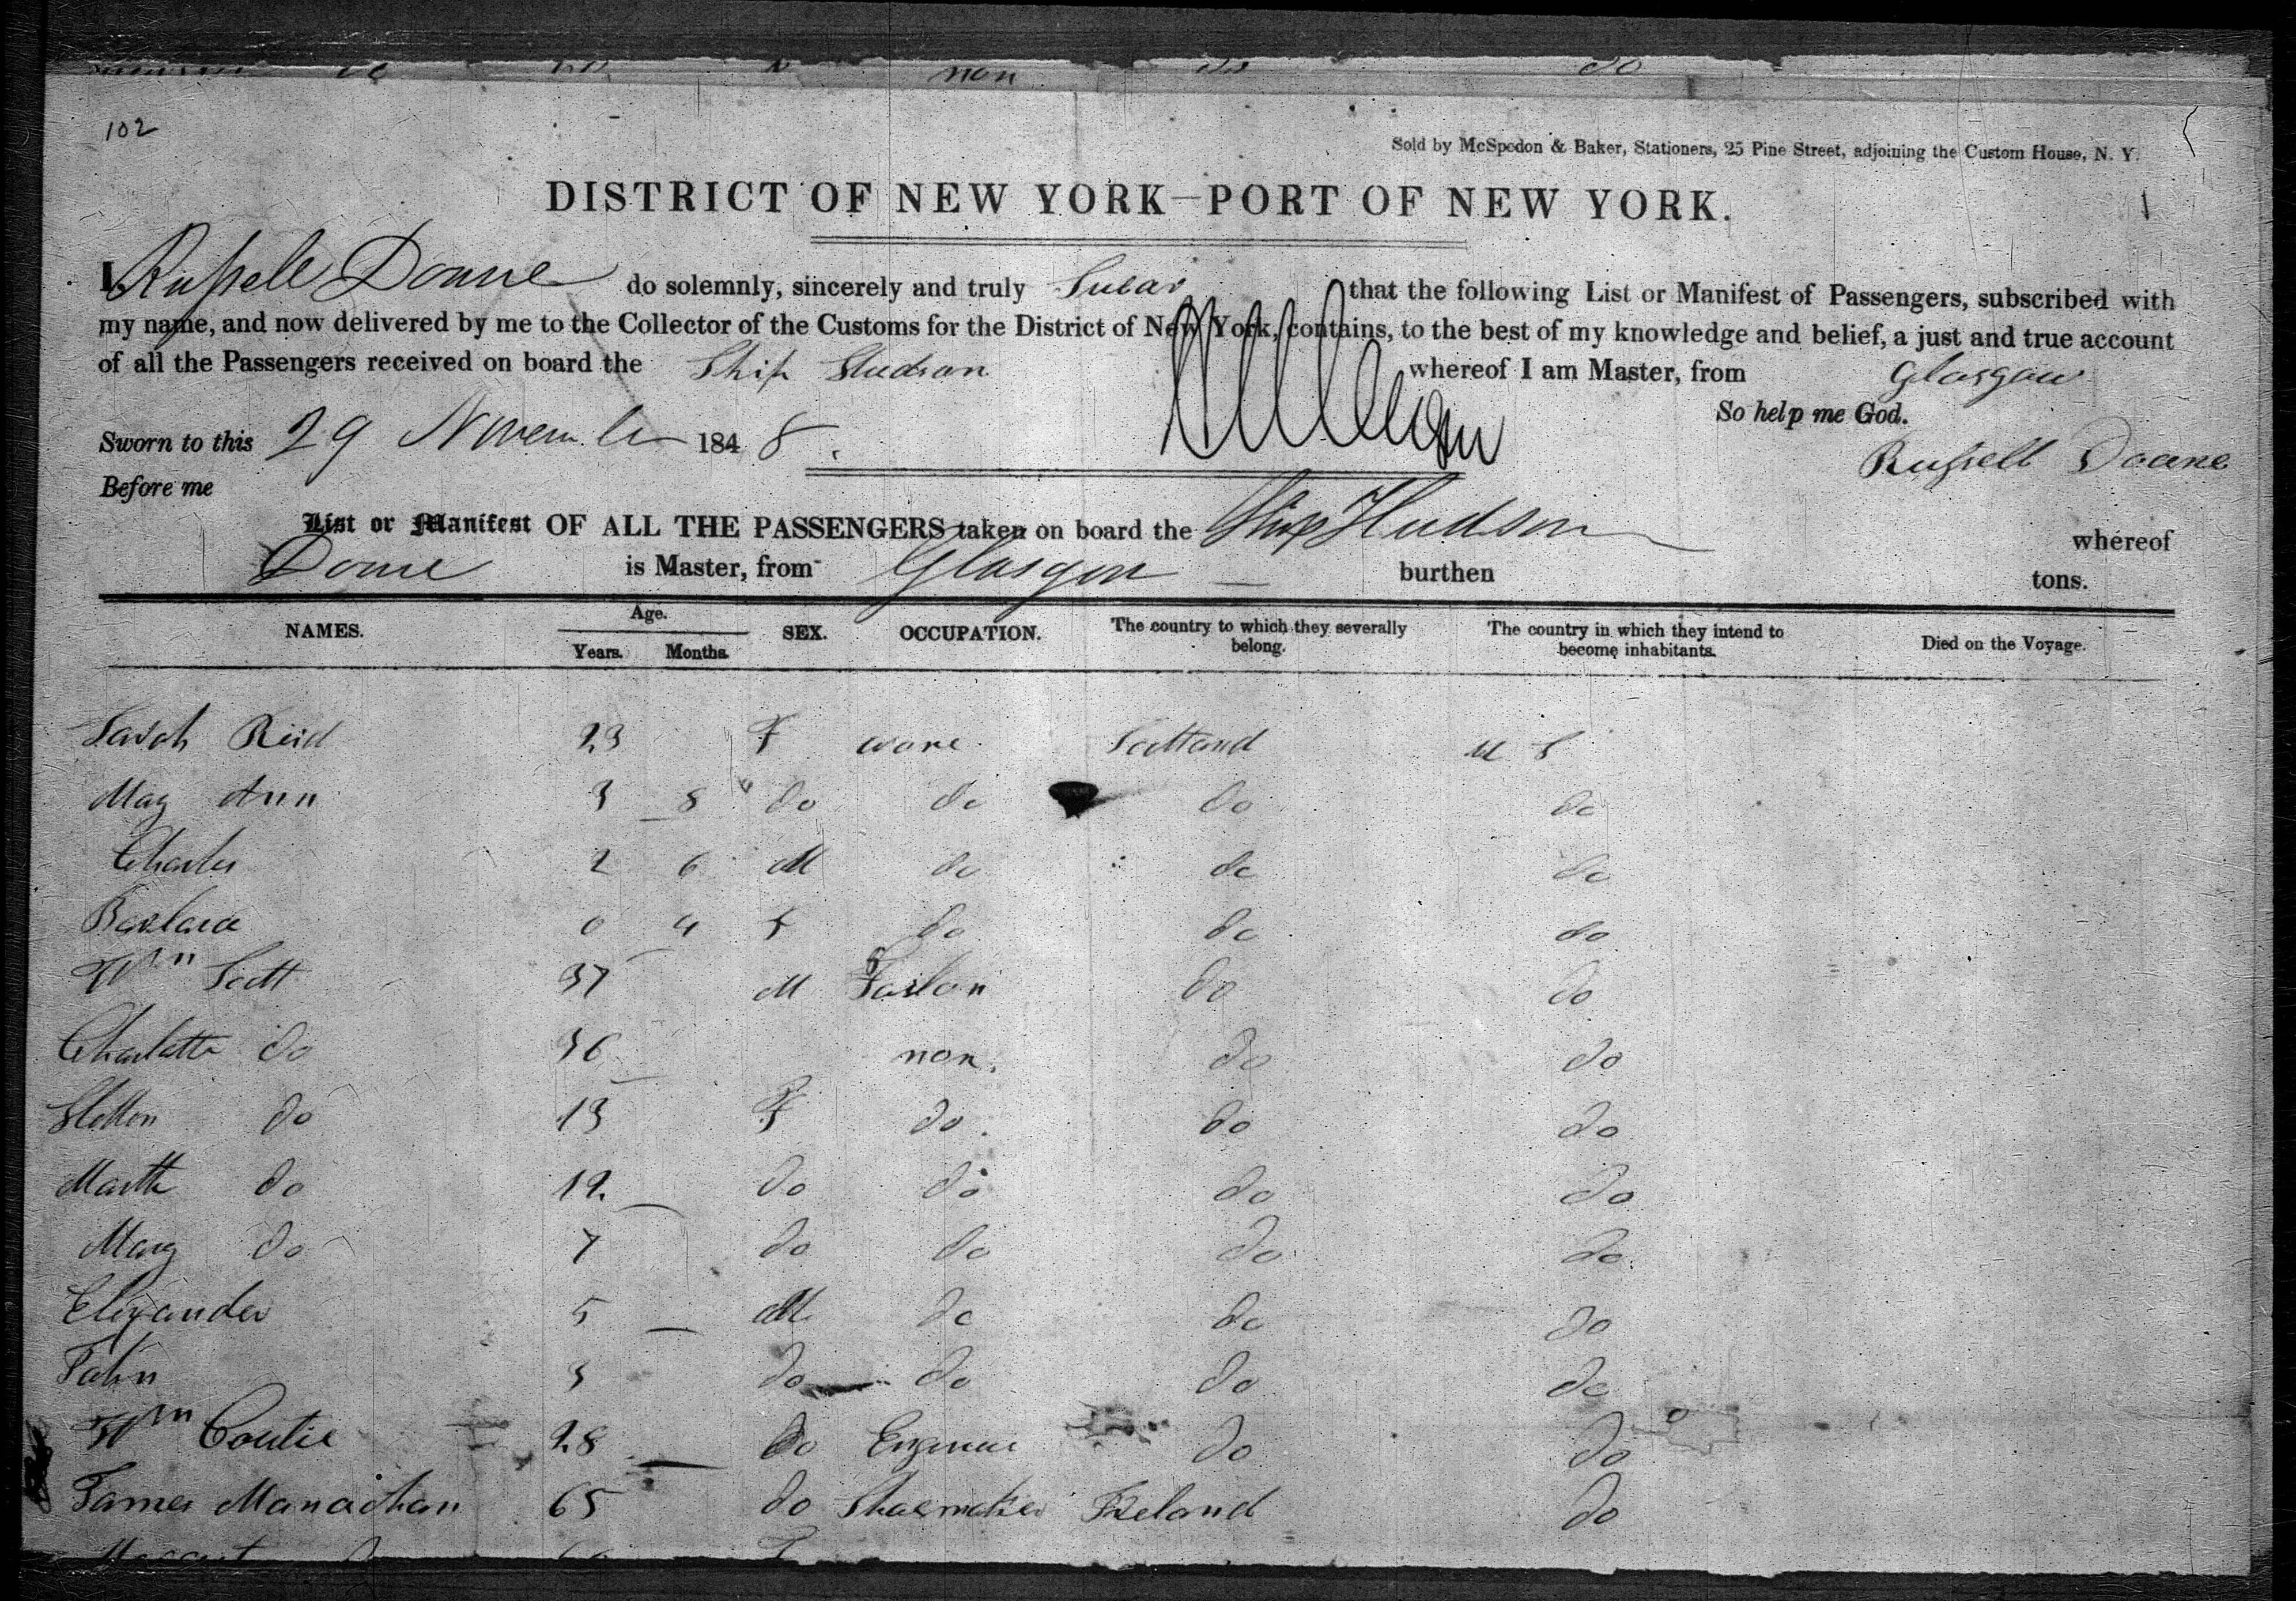 non do
102
Sold by McSpedon & Baker, Stationers, 25 Pine Street, adjoining the Custom House, N. Y.
DISTRICT OF NEW YORK—PORT OF NEW YORK.
I, Russell Doane do solemnly, sincerely and truly Swear that the following List or Manifest of Passengers, subscribed with
my name, and now delivered by me to the Collector of the Customs for the District of New York, contains, to the best of my knowledge and belief, a just and true account
of all the Passengers received on board the Ship Hudson whereof I am Master, from Glasgow
So help me God.
Sworn to this 29 November 1848.
Russell Doane
Before me
List or Manifest OF ALL THE PASSENGERS taken on board the Ship Hudson whereof
Doane is Master, from Glasgow burthen tons.
NAMES. Age. Years. Months. SEX. OCCUPATION. The country to which they severally belong. The country in which they intend to become inhabitants. Died on the Voyage.
Sarah Reid 23 F Scotland U S
Mary Ann 3 8 do do do do
Charles 2 6 M do do do
Barbara 0 4 F do do do
Wm Scott 37 M Tailor do do
Charlotte do 36 non. do do
do 13 F do do do
Marth do 12. do do do do
Mary do 7 do do do do
Elexander 5 M do do do
John 3 do do do do
Wm Coutie 28 do Engineer do do
James Manachan 65 do Shoemaker Ireland do